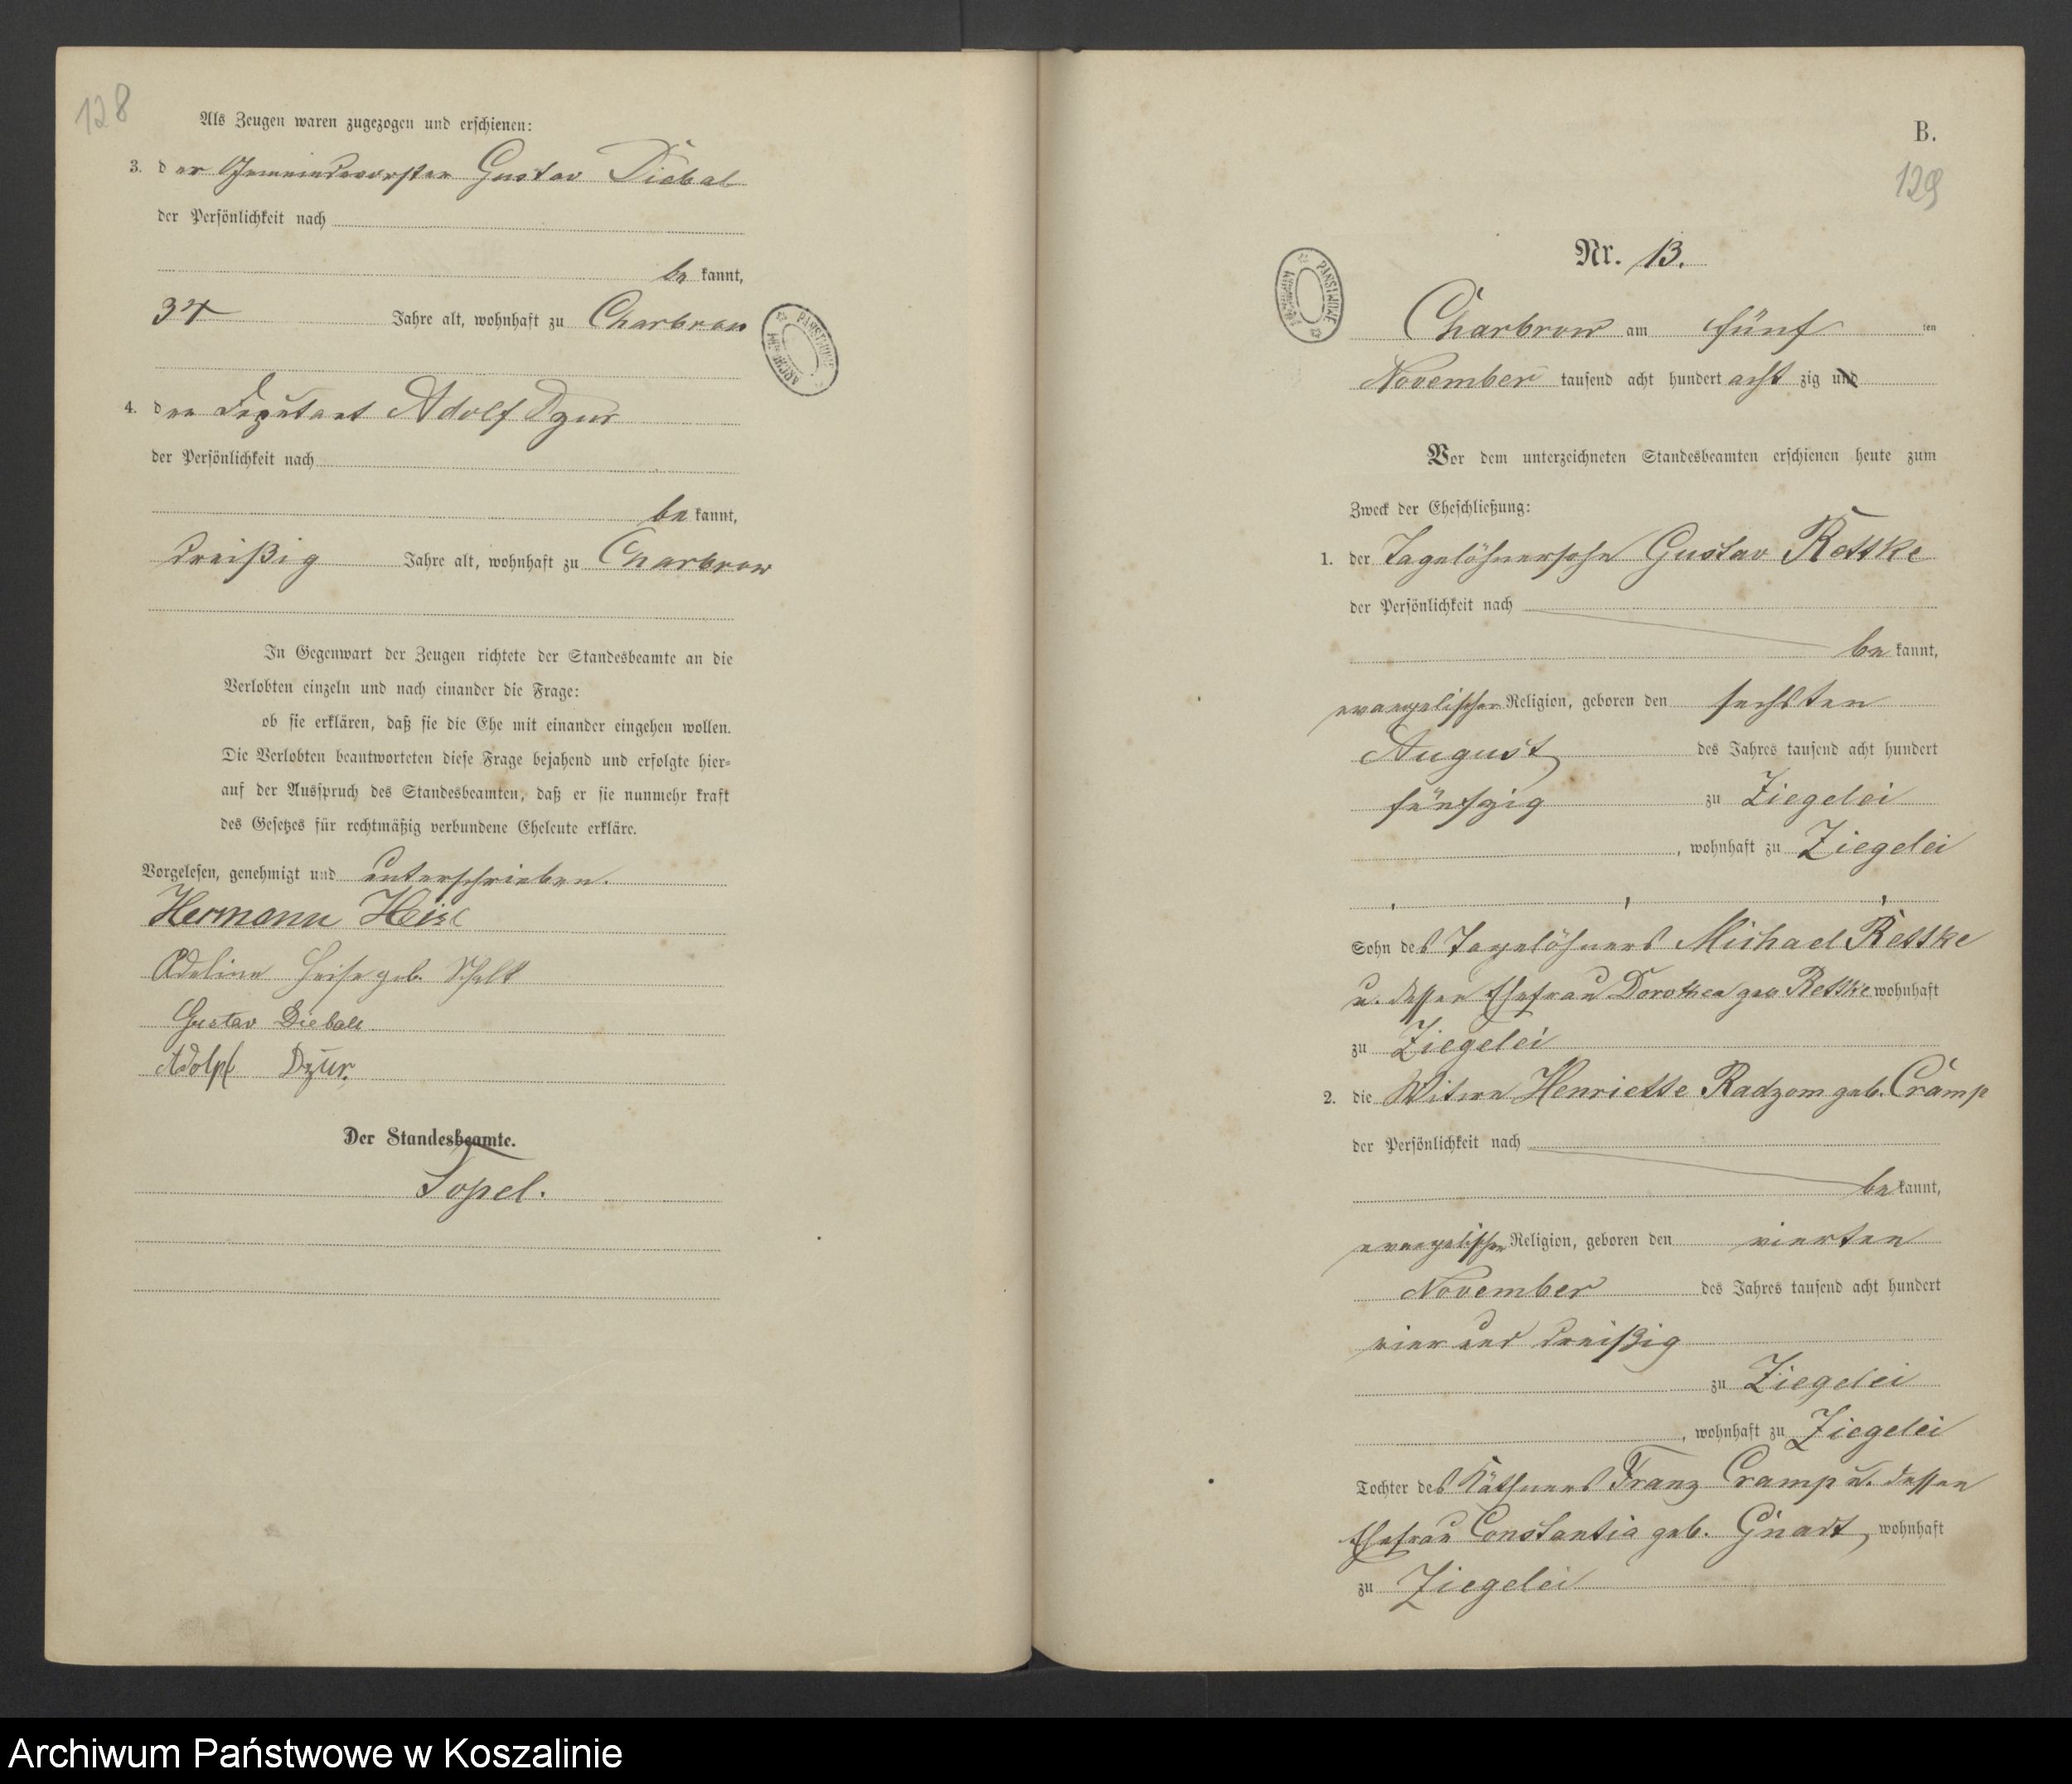 128
Als Zeugen waren zugezogen und erschienen:
3. der Gemeindevorsteher Gustav Diebal
der Persönlichkeit nach
bekannt,
34 Jahre alt, wohnhaft zu Charbrow
4. der Deputant Adolf Dzur
der Persönlichkeit nach
bekannt,
dreißig Jahre alt, wohnhaft zu Charbrow
In Gegenwart der Zeugen richtete der Standesbeamte an die
Verlobten einzeln und nach einander die Frage:
ob sie erklären, daß sie die Ehe mit einander eingehen wollen.
Die Verlobten beantworteten diese Frage bejahend und erfolgte hier-
auf der Ausspruch des Standesbeamten, daß er sie nunmehr kraft
des Gesetzes für rechtmäßig verbundene Eheleute erkläre.
Vorgelesen, genehmigt und unterschrieben.
Hermann Heise
Adeline Heise geb. Schalk
Gustav Dieball
Adolph Dzur.
Der Standesbeamte.
Topel.
B.
129
Nr. 13.
Charbrow am fünf ten
November tausend acht hundert acht zig und
Vor dem unterzeichneten Standesbeamten erschienen heute zum
Zweck der Eheschließung:
1. der Tagelöhnersohn Gustav Rettke
der Persönlichkeit nach
bekannt,
evangelischer Religion, geboren den sechsten
August des Jahres tausend acht hundert
fünfzig zu Ziegelei
, wohnhaft zu Ziegelei
Sohn des Tagelöhners Michael Rettke
u. dessen Ehefrau Dorothea geb Rettke wohnhaft
zu Ziegelei
2. die Witwe Henriette Radzom geb. Cramp
der Persönlichkeit nach
bekannt,
evangelischer Religion, geboren den vierten
November des Jahres tausend acht hundert
vier und dreißig
zu Ziegelei
, wohnhaft zu Ziegelei
Tochter des Käthners Franz Cramp u. dessen
Ehefrau Constantia geb. Gnadt, wohnhaft
zu Ziegelei
Archiwum Państwowe w Koszalinie